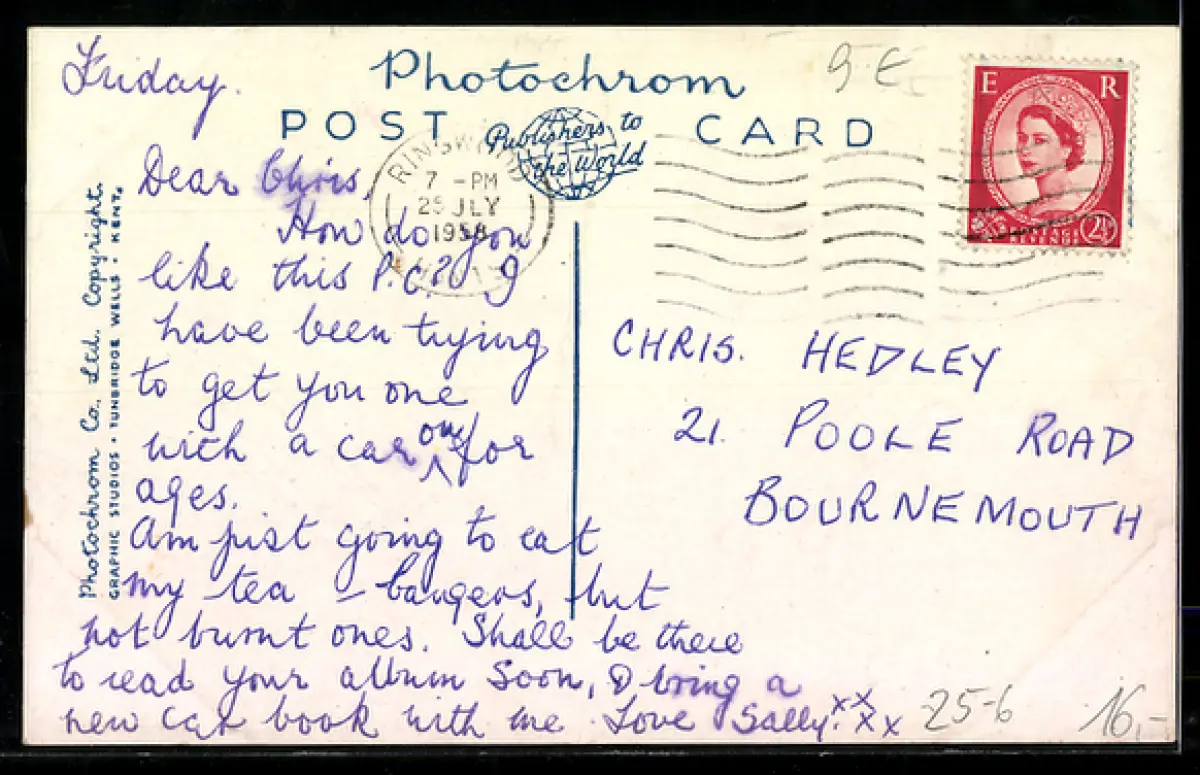 Friday.
Photochrom
POST CARD
Publishers to
the World
9 €
E R
POSTAGE
REVENUE
2½
RINGWOOD
7 - PM
25 JLY
1958
HANTS
Dear Chris,
How do you
like this P.C.? I
have been trying
to get you one
with a car on for
ages.
Am just going to eat
my tea - bangers, but
not burnt ones. Shall be there
to read your album soon, & bring a
new car book with me. Love Sally. xx
xx
CHRIS. HEDLEY
21. POOLE ROAD
BOURNEMOUTH
Photochrom Co., Ltd. Copyright.
GRAPHIC STUDIOS • TUNBRIDGE WELLS • KENT.
25-6
16,-